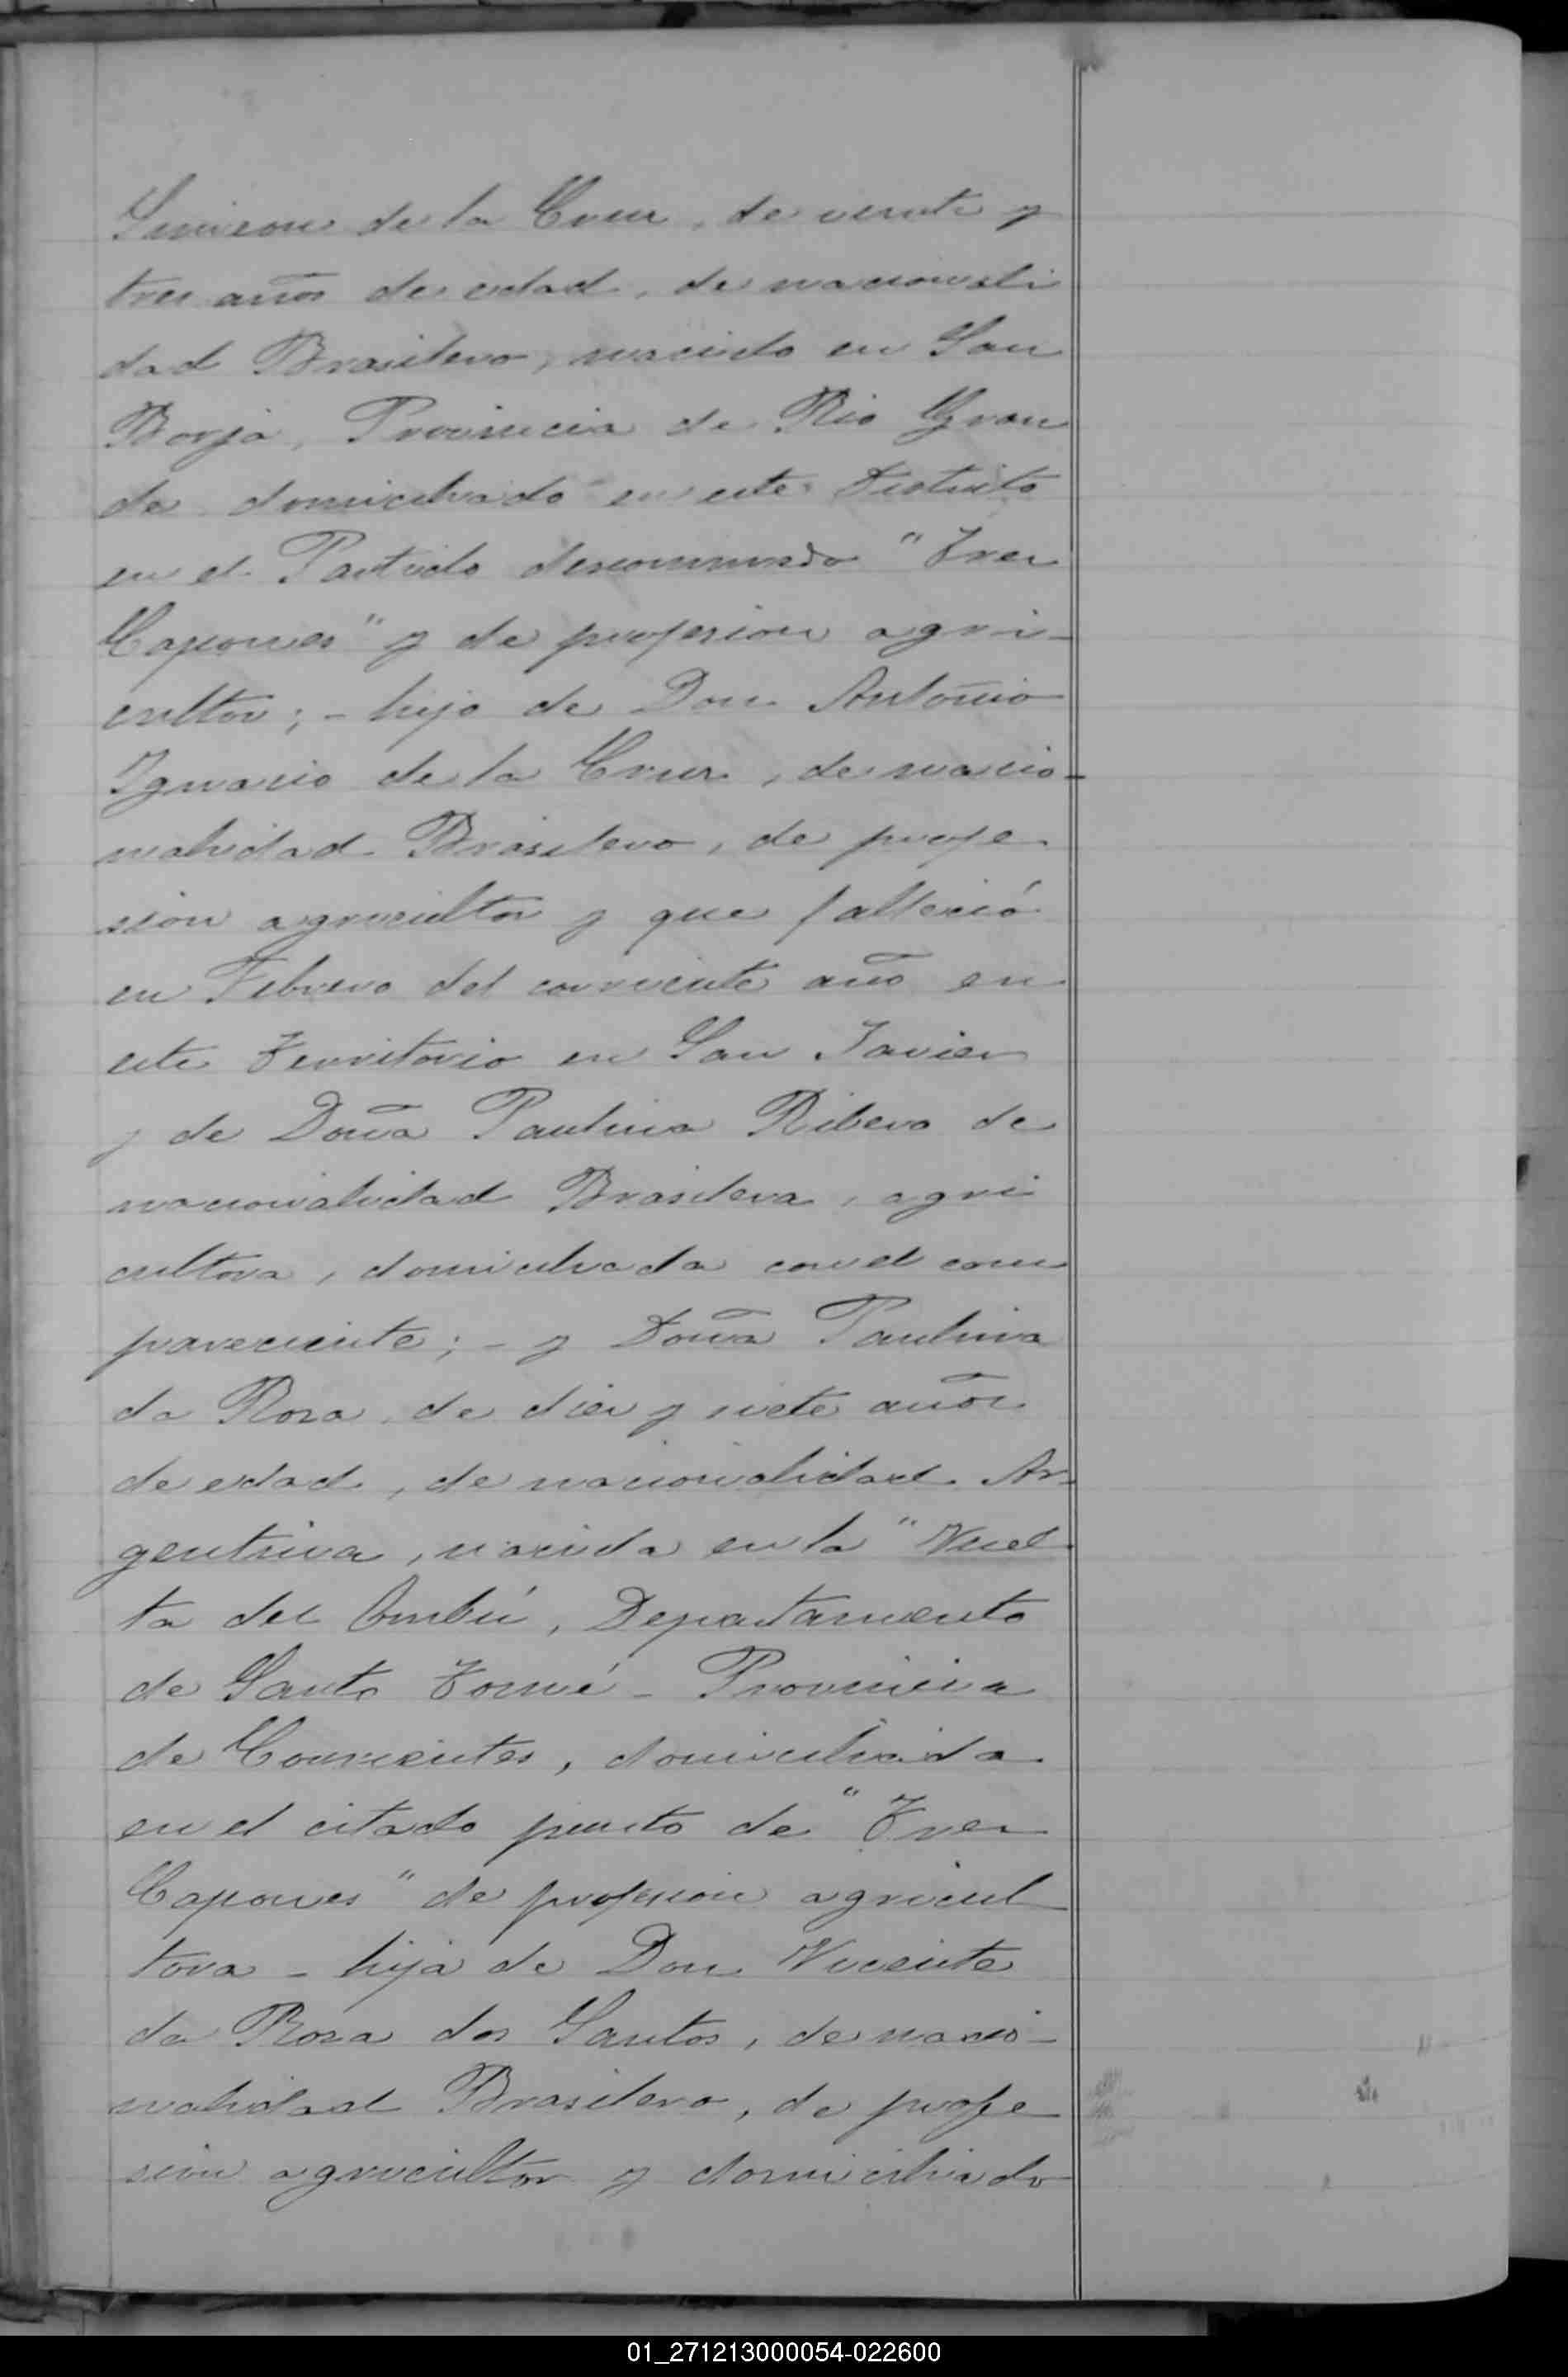 Simeon de la Cruz, de veinte y
tres años de edad, de nacionali
dad Brasilero, nacido en San
Borja, Provincia de Rio Gran
de domiciliado en este Distrito
en el Partido denominado "Tres
Capones" y de profesion agri-
cultor; - hijo de Don Antonio
Ignacio de la Cruz, de nacio-
nalidad Brasilero, de profe
sion agricultor y que falleció
en Febrero del corriente año en
este Territorio en San Javier
y de Doña Paulina Ribero de
nacionalidad Brasilera, agri
cultora, domiciliada con el com
pareciente; - y Doña Paulina
da Rosa, de diez y siete años
de edad, de nacionalidad Ar-
gentina, nacida en la "Vuel
ta del Ombú, Departamento
de Santo Tomé - Provincia
de Corrientes, domiciliada
en el citado punto de "Tres
Capones" de profesion agricul
tora - hija de Don Vicente
da Rosa dos Santos, de nacio-
nalidad Brasilero, de profe
sion agricultor y domiciliado
01_271213000054-022600